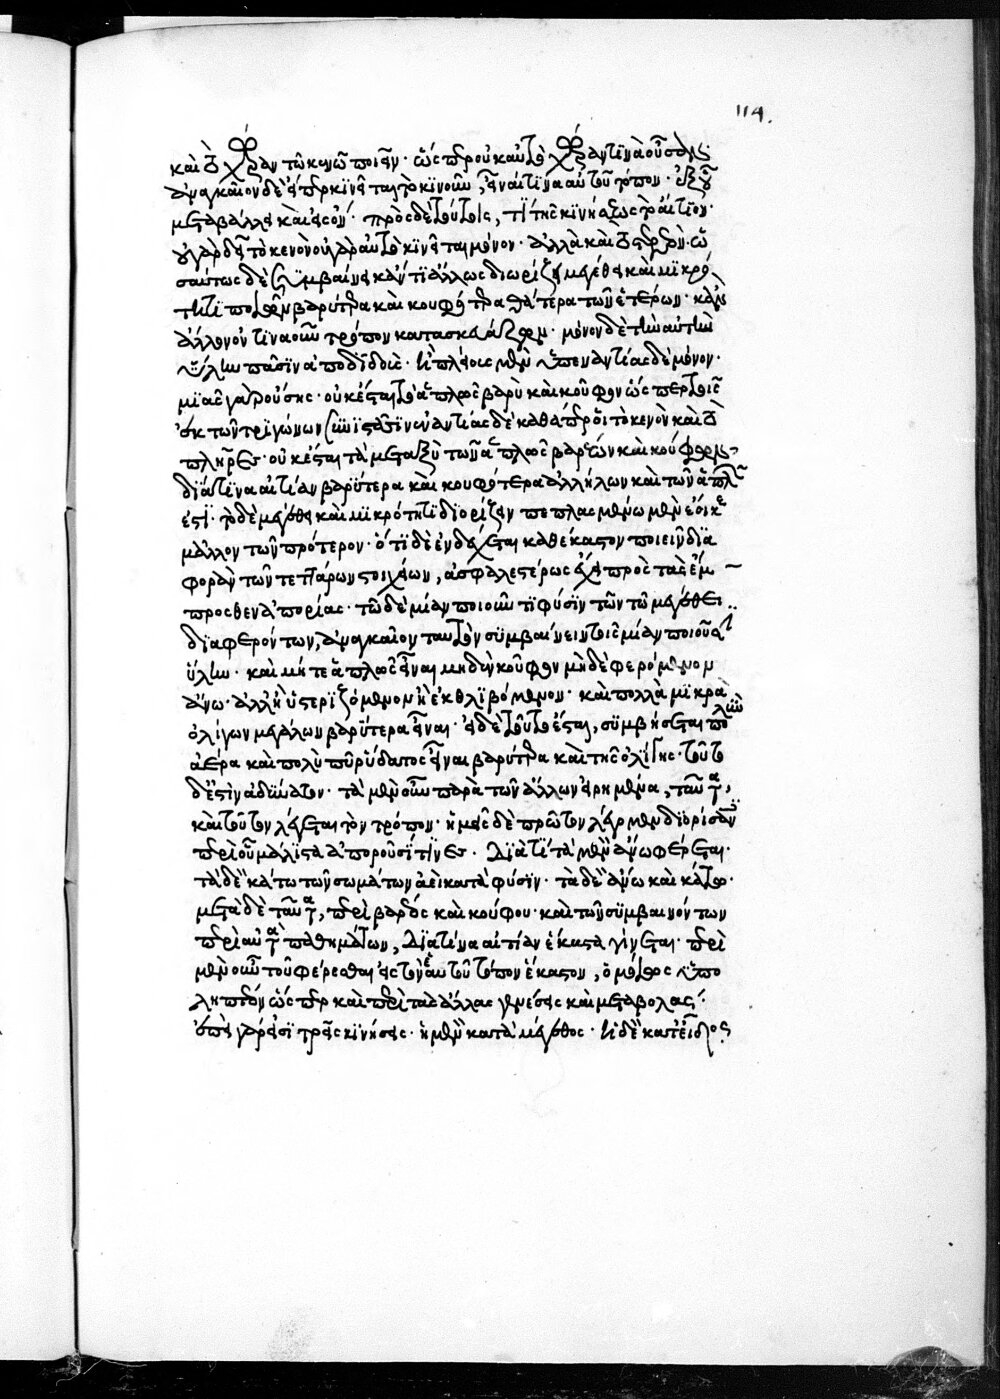 114.
καὶ τὸ χώραν τῶ κενῶ ποιεῖν· ὥσπερ οὐκ αὐτὸ χώραν τινὰ οὖσαν·
ἀναγκαῖον δὲ εἴπερ κινεῖται τὸ κενὸν, εἶναί τινα αὐτοῦ τόπον· ἐξ οὗ
μεταβάλλει καὶ εἰς ὅν· πρὸς δὲ τούτοις, τί τῆς κινήσεως τὸ αἴτιον·
οὐ γὰρ δὴ τὸ κενόν· οὐ γὰρ αὐτὸ κινεῖται μόνον· ἀλλὰ καὶ τὸ στερεόν· ὡ
σαύτως δὲ συμβαίνει κἄν τι ἄλλως διωρίζῃ μεγέθει καὶ μικρό
τητι ποιῶν βαρύτερα καὶ κουφότερα θάτερα τῶν ἑτέρων· καὶ
ἄλλον ὁντιναοῦν τρόπον κατασκευάζων· μόνον δὲ τὴν αὐτὴν
ὕλην πᾶσιν ἀποδιδούς· ἢ πλείοις μὲν ὑπεναντίας δὲ μόνον·
μιᾶς γὰρ οὔσης· οὐκ ἔσται τὸ ἁπλῶς βαρὺ καὶ κοῦφον ὥσπερ τοῖς
ἐκ τῶν τριγώνων συνιστᾶσιν ἐναντίας δὲ καθάπερ οἱ τὸ κενὸν καὶ τὸ
πλῆρες· οὐκ ἔσται τὰ μεταξὺ τῶν ἁπλῶς βαρέων καὶ κούφων
διά τινα αἰτίαν βαρύτερα καὶ κουφότερα ἀλλήλων καὶ τῶν ἁπλῶν
ἐστι· τὸ δὲ μεγέθει καὶ μικρότητι διορίζειν πεπλασμένω μὲν ἔοικε
μᾶλλον τῶν πρότερον· ὅτι δὲ ἐνδέχεται καθ' ἕκαστον ποιεῖν δια
φορὰν τῶν τεττάρων στοιχείων, ἀσφαλεστέρως ἔχει πρὸς τὰς ἔμ
προσθεν ἀπορίας· τῶ δὲ μίαν ποιεῖν τι φύσιν τῶν τῶ μεγέθει
διαφερόντων, ἀναγκαῖον ταυτὸν συμβαίνειν τοῖς μίαν ποιοῦσιν
ὕλην· καὶ μήτε ἁπλῶς εἶναι μηδὲν κοῦφον μηδὲ φερόμενον
ἄνω· ἀλλ' ἢ ὑστεριζόμενον ἢ ἐκθλιβόμενον· καὶ πολλὰ μικρὰ
ὀλίγων μεγάλων βαρύτερα εἶναι· εἰ δὲ τοῦτο ἔσται, συμβήσεται πολὺν
ἀέρα καὶ πολὺ πῦρ ὕδατος εἶναι βαρύτερα καὶ γῆς ὀλίγης· τοῦτο
δέ ἐστιν ἀδύνατον· τὰ μὲν οὖν παρὰ τῶν ἄλλων εἰρημένα, ταῦτα,
καὶ τοῦτον λέγεται τὸν τρόπον· ἡμεῖς δὲ πρῶτον λέγωμεν διορίσαντες
περὶ οὗ μάλιστα ἀποροῦσί τινες· διὰ τί τὰ μὲν ἄνω φέρεται·
τὰ δὲ κάτω τῶν σωμάτων ἀεὶ κατὰ φύσιν· τὰ δὲ ἄνω καὶ κάτω·
μετὰ δὲ ταῦτα, περὶ βαρέος καὶ κούφου· καὶ τῶν συμβαινόντων
περὶ αὐτὰ παθημάτων, διὰ τίνα αἰτίαν ἕκαστα γίνεται· περὶ
μὲν οὖν τοῦ φέρεσθαι εἰς τὸν αὑτοῦ τόπον ἕκαστον, ὁμοίως ὑπο
ληπτέον ὥσπερ καὶ περὶ τὰς ἄλλας γενέσεις καὶ μεταβολάς·
ἐπεὶ γάρ εἰσι τρεῖς κινήσεις· ἡ μὲν κατὰ μέγεθος· ἡ δὲ κατ' εἶδος